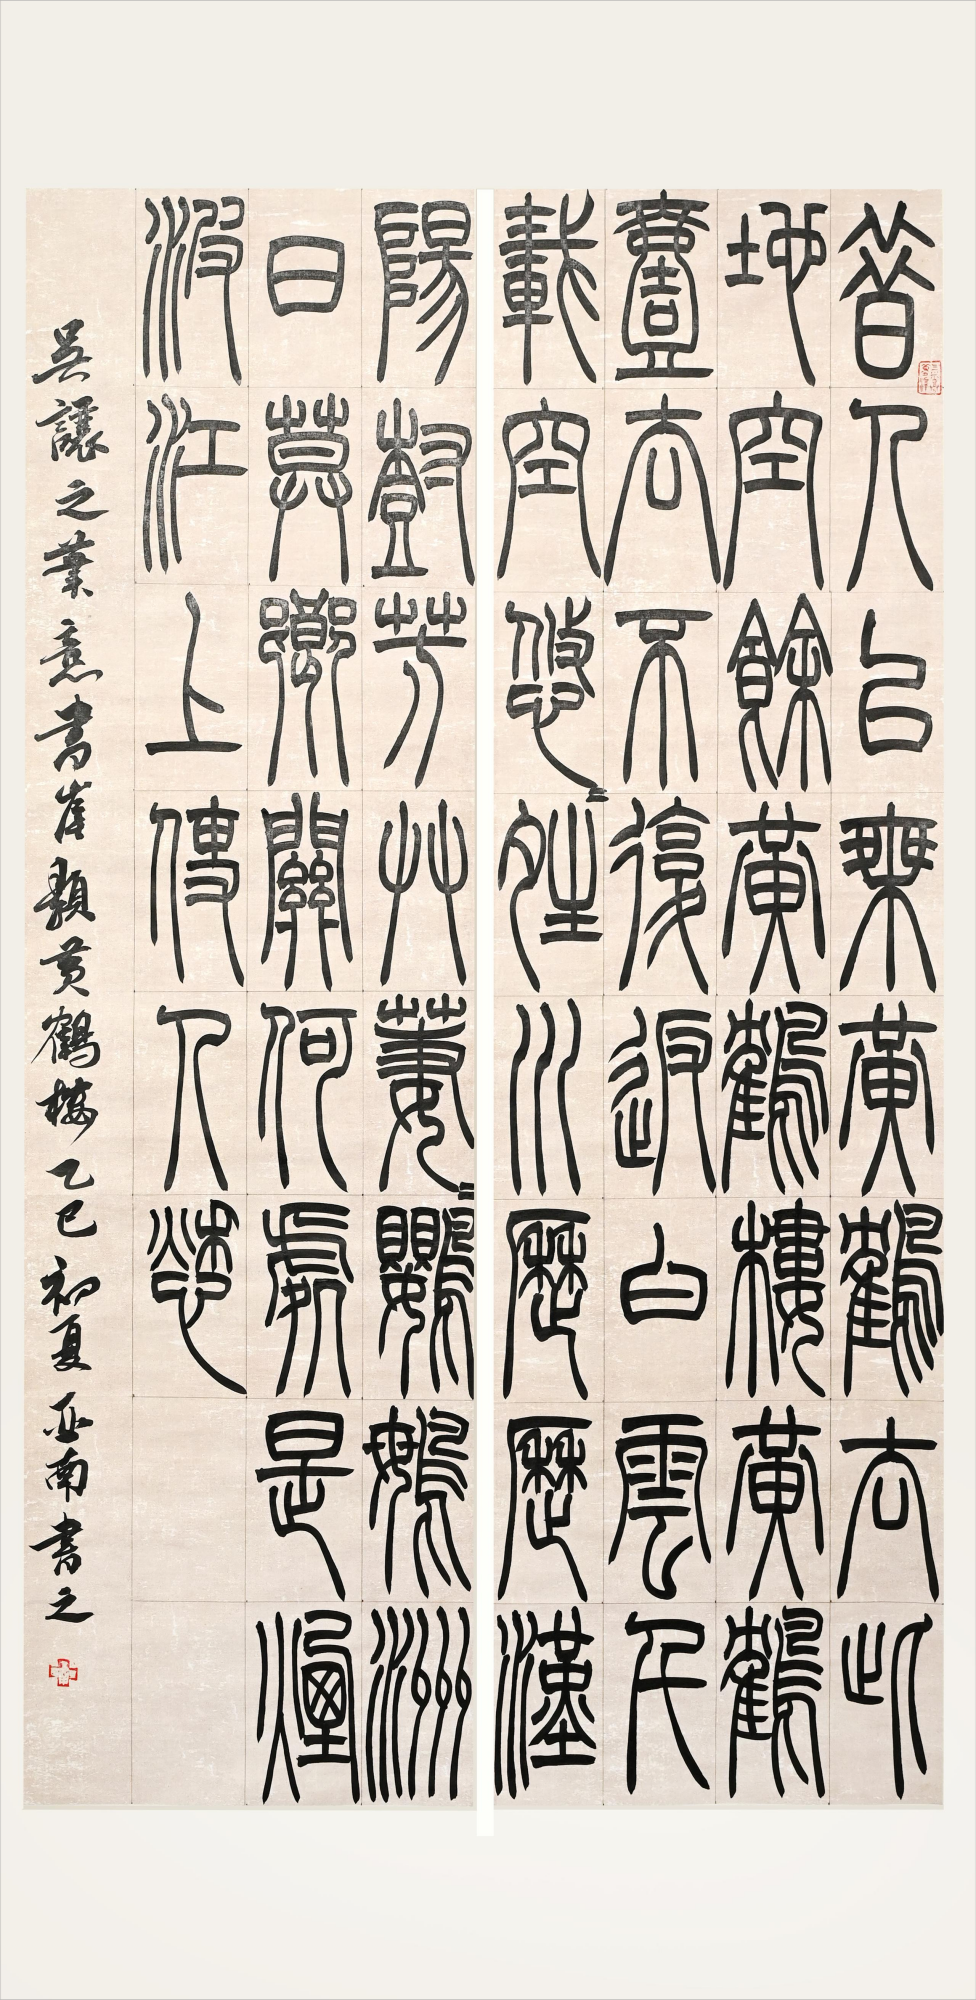 昔人已乘黃鶴去此
地空餘黃鶴樓黃鶴
壹去不復返白雲千
載空悠〻夝川歷歷漢
陽樹芳艸萋〻鸚鵡洲
日莫鄉關何處是煙
波江上使人愁
吳讓之筆意書崔顥黃鶴樓乙巳初夏亞南書之